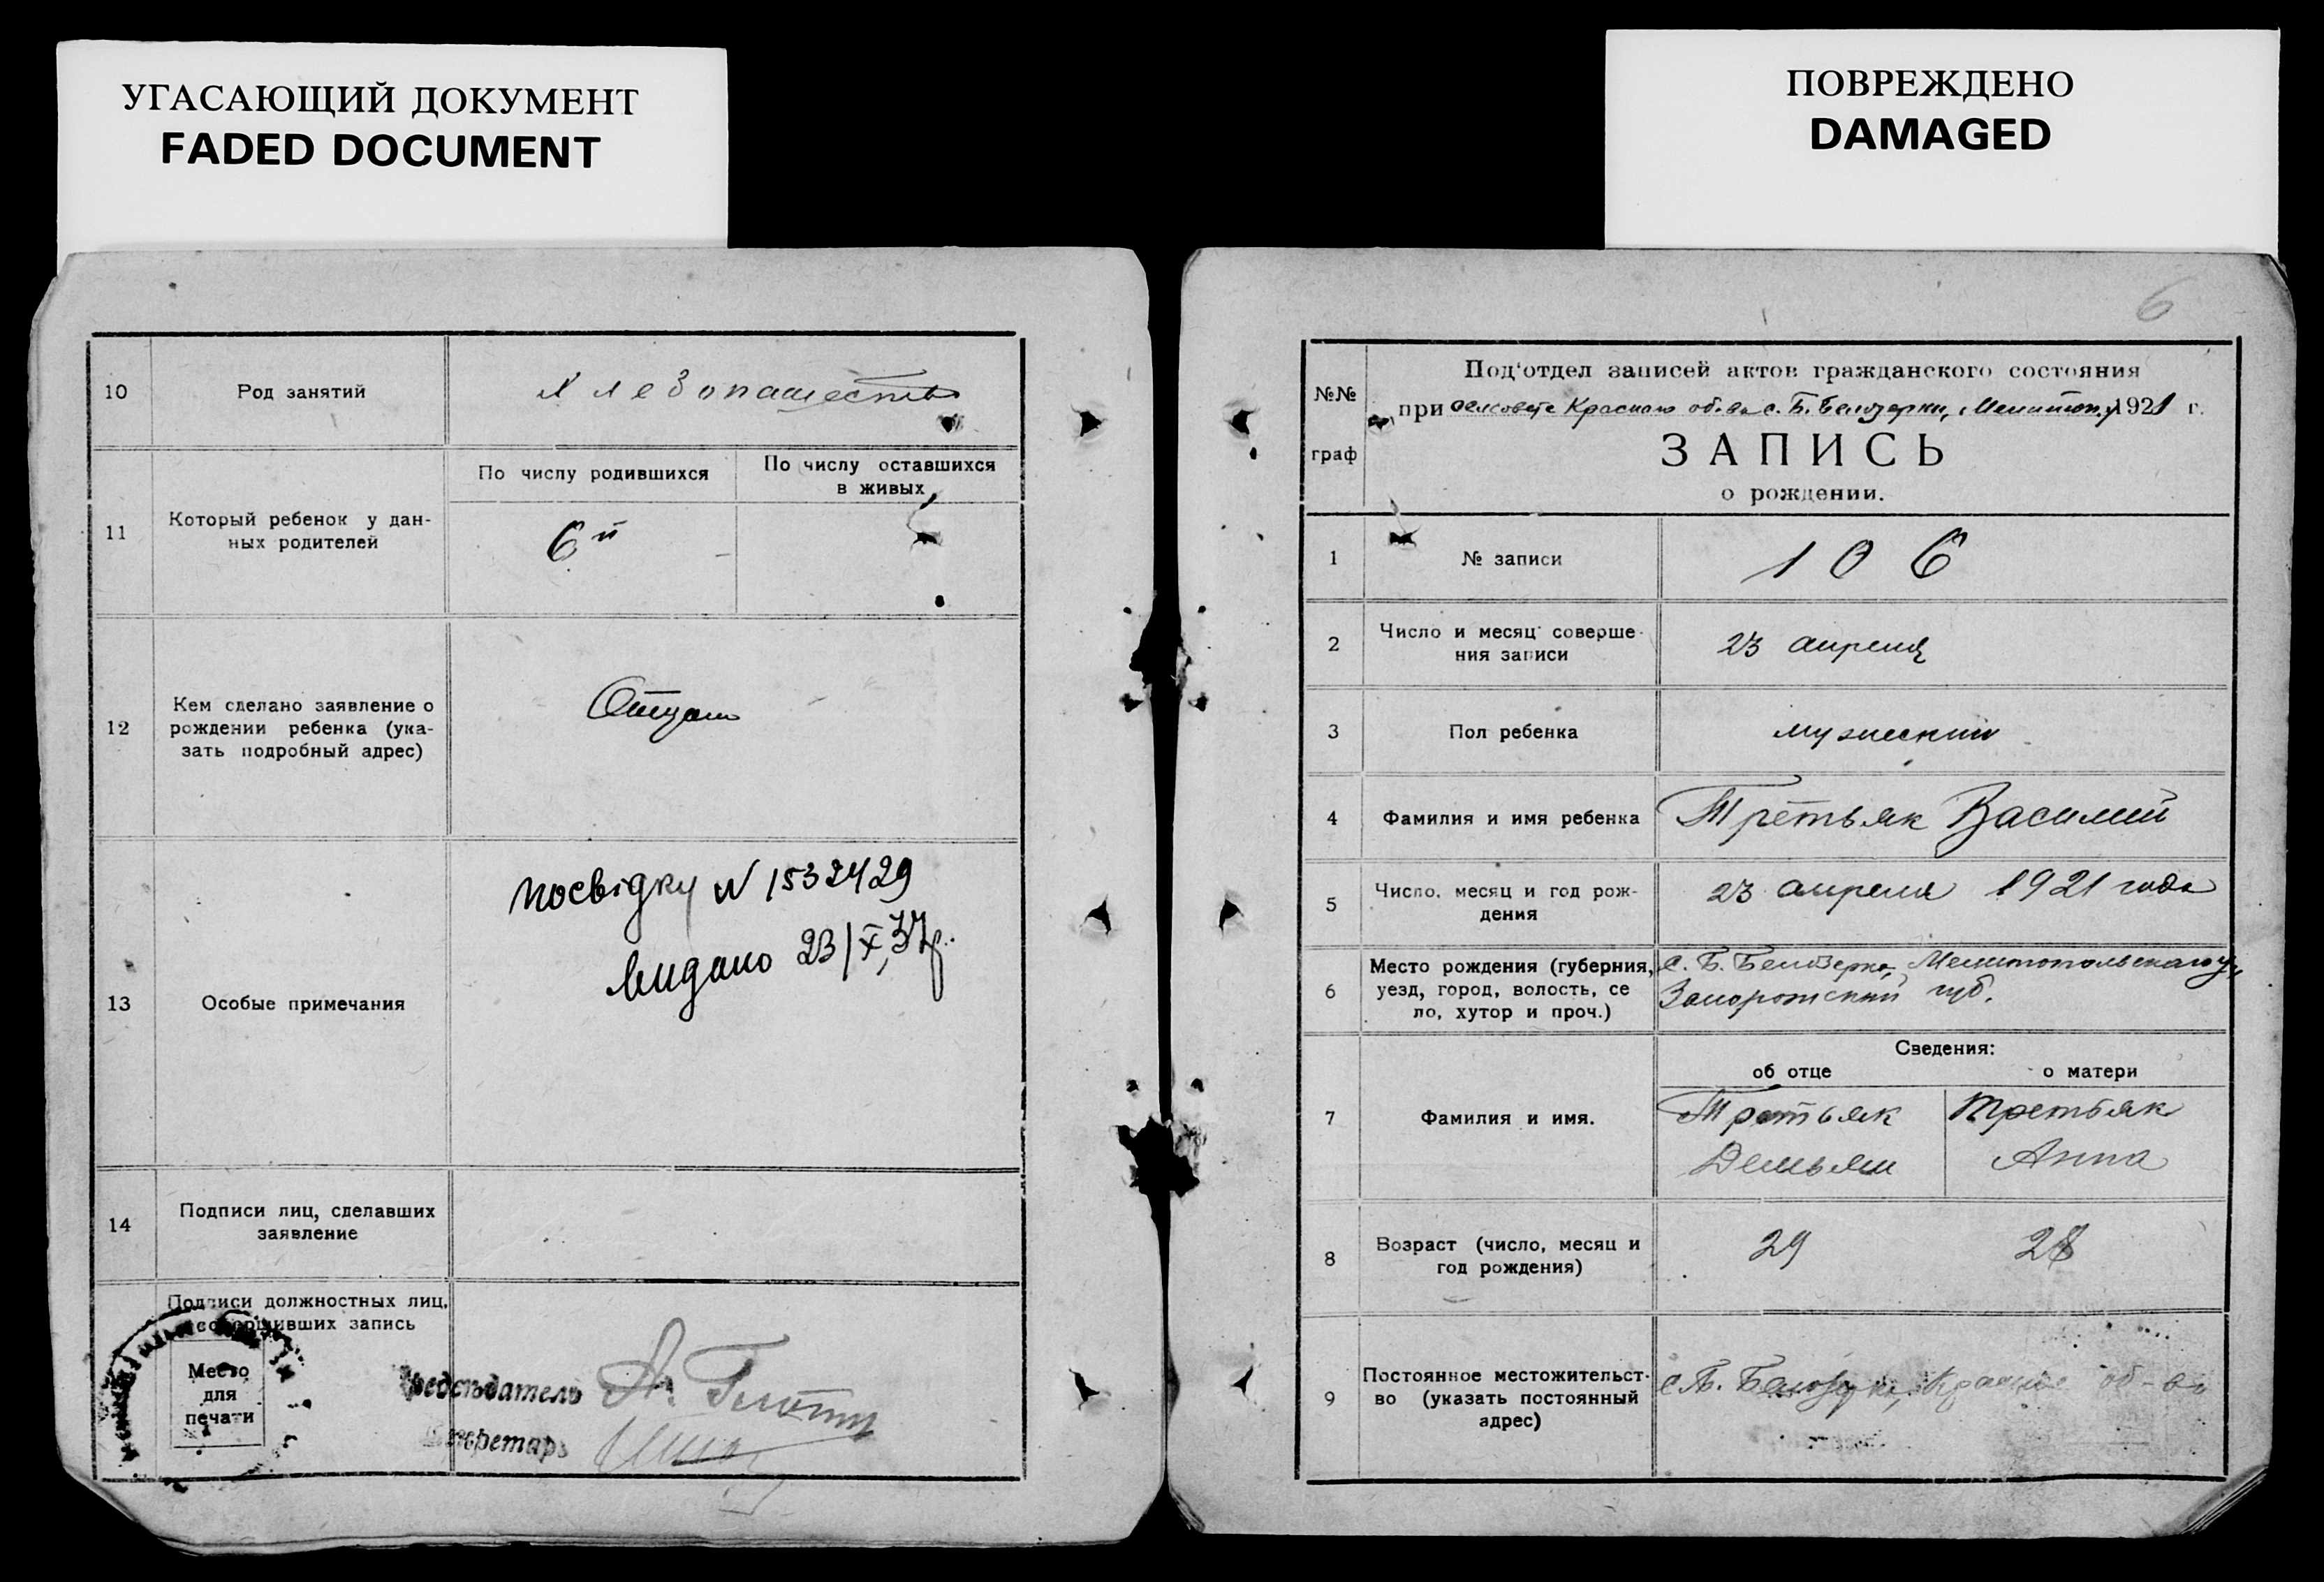 УГАСАЮЩИЙ ДОКУМЕНТ
FADED DOCUMENT
ПОВРЕЖДЕНО
DAMAGED
10
Род занятий
Хлебопашество
11
Который ребенок у дан-
ных родителей
По числу родившихся
6й
По числу оставшихся
в живых
12
Кем сделано заявление о
рождении ребенка (ука-
зать подробный адрес)
Отцом
13
Особые примечания
посвідку N 1532429
видано 23/X, 37р.
14
Подписи лиц, сделавших
заявление
Подписи должностных лиц,
совершивших запись
Место
для
печати
Председатель
Секретарь
6
№№
граф
Под'отдел записей актов гражданского состояния
при сельсовете Красного об-ва с. Б. Белозерки, Мелитоп. у 1921 г.
ЗАПИСЬ
о рождении.
1
№ записи
106
2
Число и месяц соверше-
ния записи
23 апреля
3
Пол ребенка
мужеский
4
Фамилия и имя ребенка
Третьяк Василий
5
Число, месяц и год рож-
дения
23 апреля 1921 года
6
Место рождения (губерния,
уезд, город, волость, се
ло, хутор и проч.)
с. Б. Белозерка, Мелитопольскаго у,
Запорожский губ.
Сведения:
об отце
о матери
7
Фамилия и имя.
Третьяк
Демьян
Третьяк
Анна
8
Возраст (число, месяц и
год рождения)
29
28
9
Постоянное местожительст-
во (указать постоянный
адрес)
с Б. Белозерка, Красное об-во